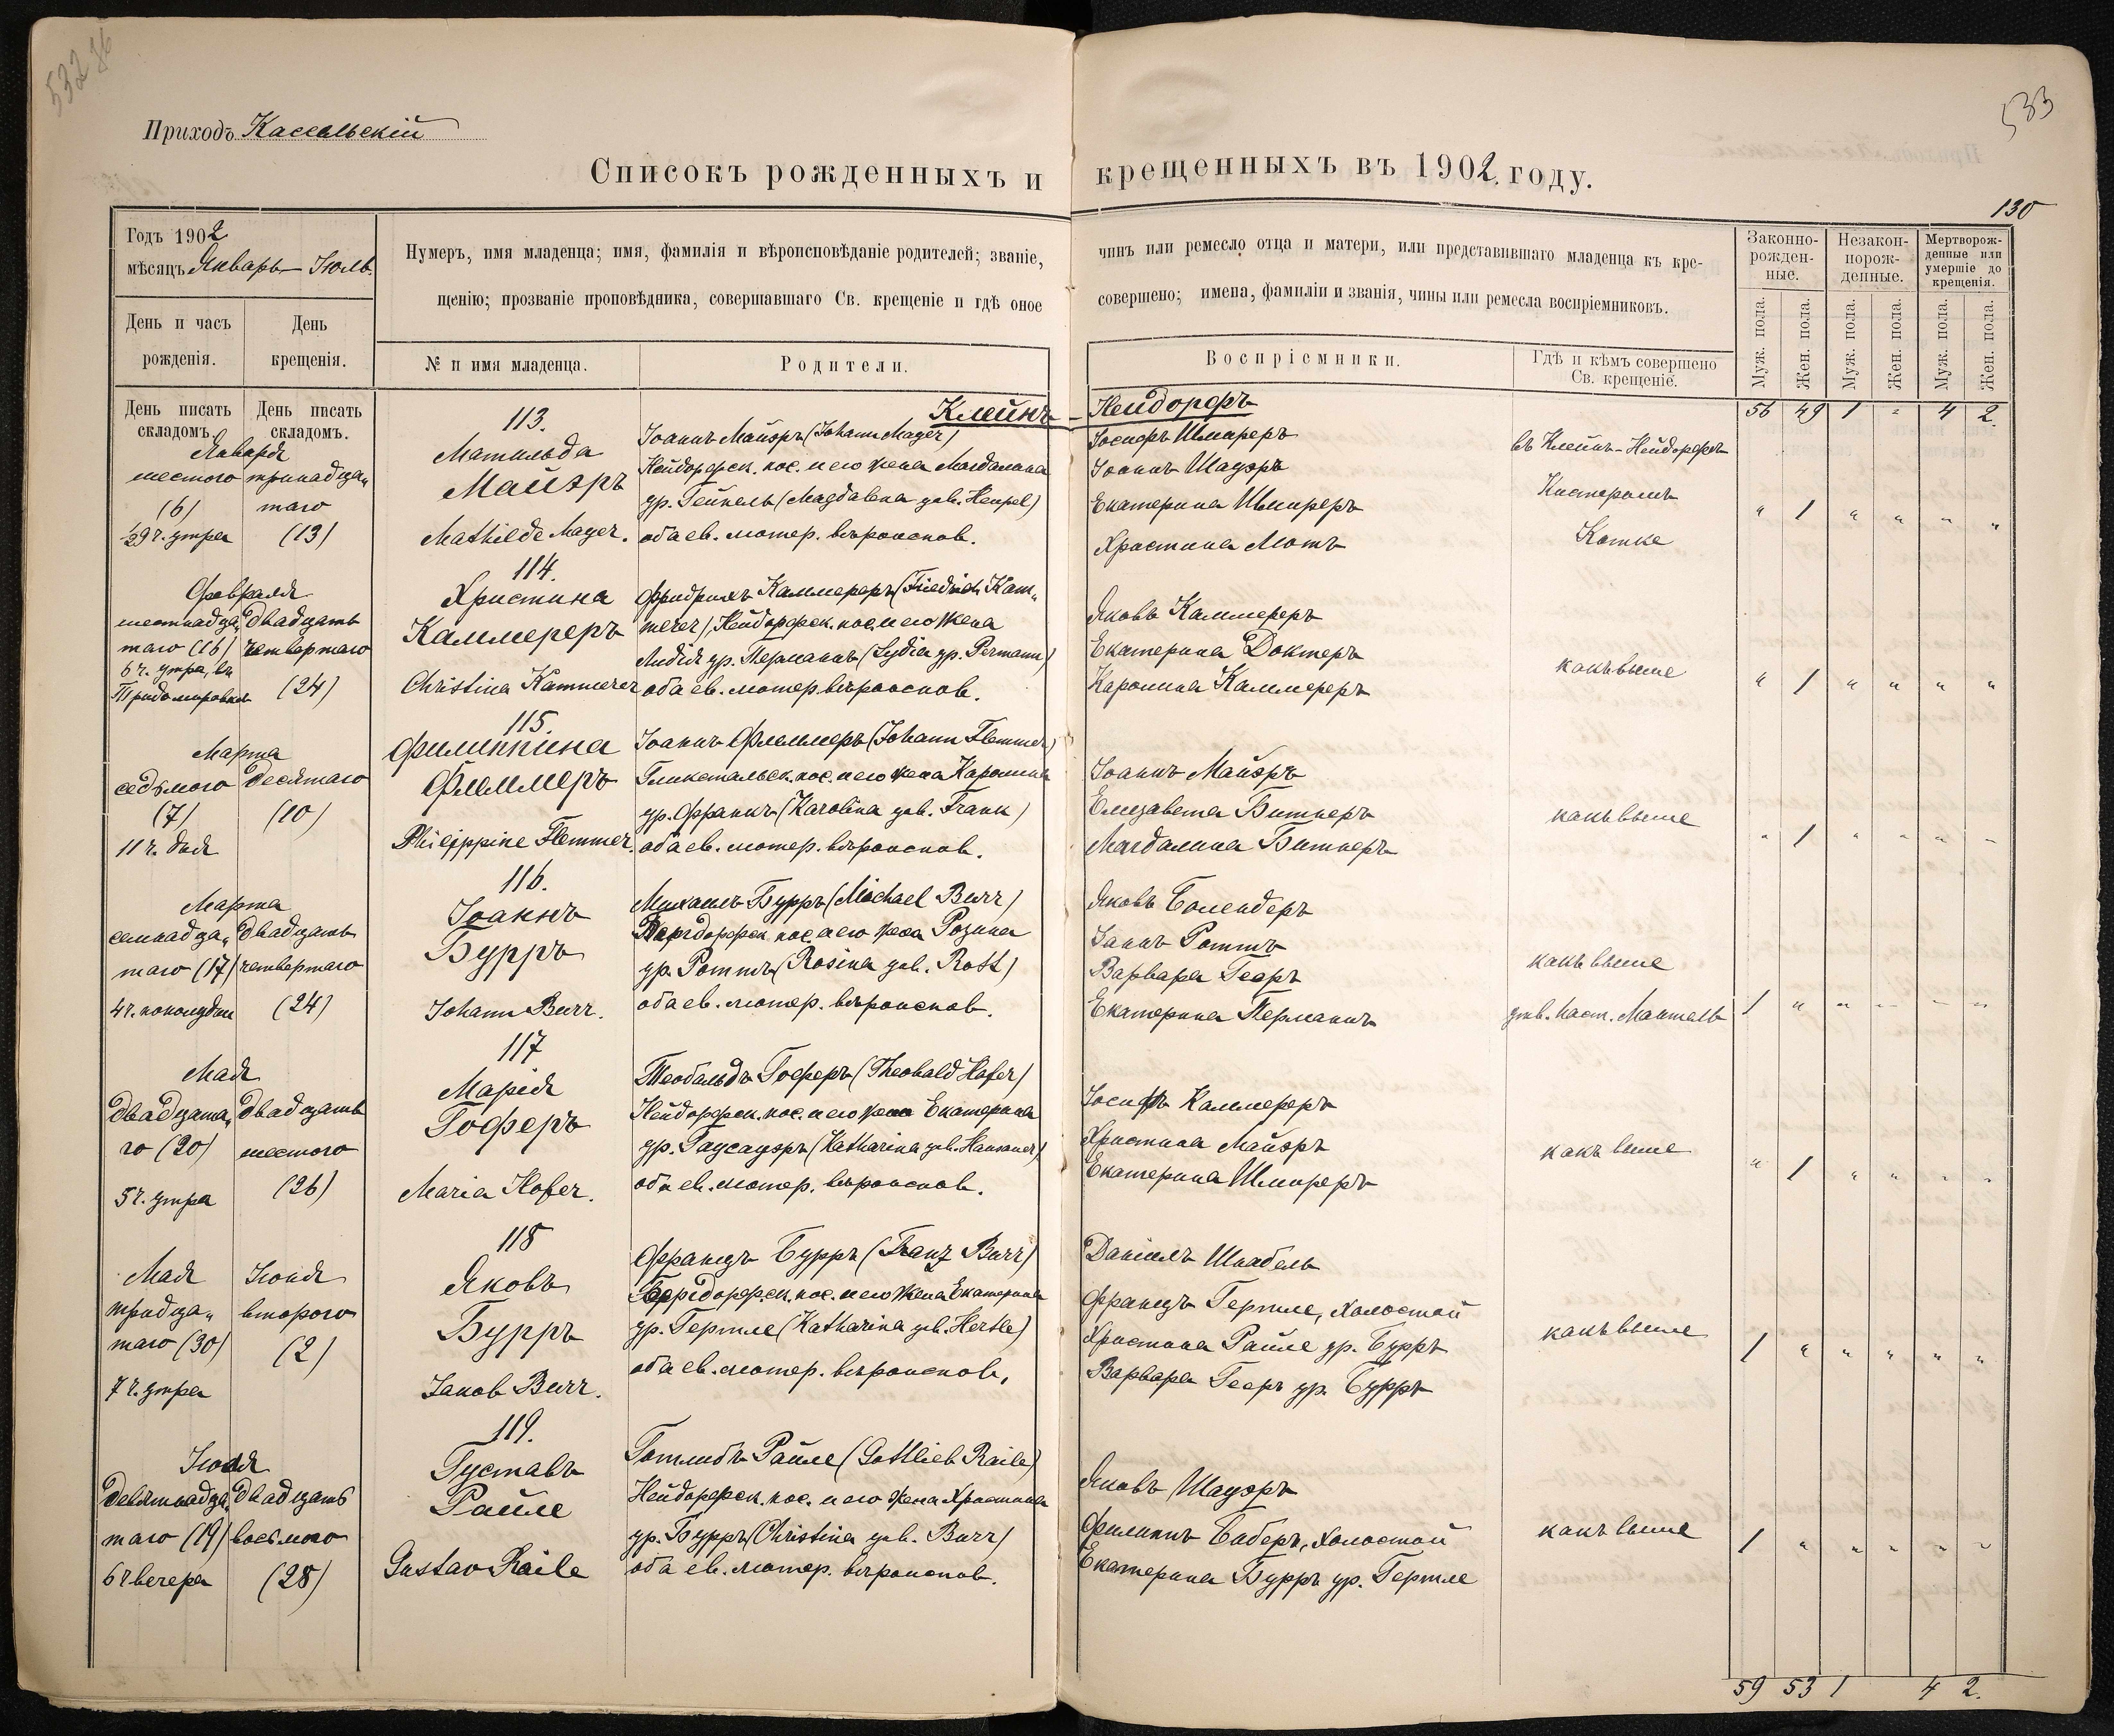 532
533
Приходъ Кассельскій
Списокъ рожденныхъ и крещенныхъ въ 1902 году.
130
Годъ 1902
мѣсяцъ Январь – Іюль.
Нумеръ, имя младенца; имя, фамилія и вѣроисповѣданіе родителей; званіе, чинъ или ремесло отца и матери, или представившаго младенца къ кре-
щенію; прозваніе проповѣдника, совершавшаго Св. крещеніе и гдѣ оное совершено; имена, фамиліи и званія, чины или ремесла воспріемниковъ.
День и часъ рожденія.
День крещенія.
№ и имя младенца.
Родители.
Воспріемники.
Гдѣ и кѣмъ совершено Св. крещеніе.
Законно-рожден-ные.
Незакон-норож-денные.
Мертворож-денные или умершіе до крещенія.
Муж. пола.
Жен. пола.
Муж. пола.
Жен. пола.
Муж. пола.
Жен. пола.
День писать складомъ.
День писать складомъ.
Клейнъ – Нейдорфъ
56 49 1 - 4 2.
Января
шестого
(6)
½9 ч. утра
тринадца„
таго
(13)
113.
Матильда
Майэръ
Mathilde Mayer.
Іоаннъ Майэръ (Johann Mayer)
Нейдорфск. пос. и его жена Магдалина
ур. Гейпель (Magdalena geb. Heupel)
оба ев. лютер. вѣроиспов.
Іосифъ Шмиреръ
Іоаннъ Шауэръ
Екатерина Шмиреръ
Христина Мотъ
въ Клейнъ-Нейдорфѣ
Кистеромъ
Котке
" 1 " " " "
Февраля
шестнадца„
таго (16)
6 ч. утра, въ
двадцать
четвертаго
(24)
114.
Христина
Каммереръ
Christina Kammerer
Фридрихъ Каммереръ (Friedrich Kam„
merer), Нейдорфск. пос. и его жена
Лидія ур. Перманнъ (Lydia ур. Permann)
оба ев. лютер. вѣроиспов.
Яковъ Каммереръ
Екатерина Доктеръ
Каролина Каммереръ
какъ выше
" 1 " " " "
Марта
седьмого
(7)
11 ч. дня
десятаго
(10)
115.
Филиппина
Флеммеръ
Philippine Flemmer.
Іоаннъ Флеммеръ (Johann Flemmer)
Гликстальск. пос. и его жена Каролина
ур. Франкъ (Karolina geb. Frank)
оба ев. лютер. вѣроиспов.
Іоаннъ Майэръ
Елизавета Битнеръ
Магдалина Битнеръ
какъ выше
" 1 " " " "
Марта
семнадца„
таго (17)
4 ч. пополудни
двадцать
четвертаго
(24)
116.
Іоаннъ
Бурръ
Johann Burr.
Михаилъ Бурръ (Michael Burr)
Бергдорфск. пос. и его жена Розина
ур. Роттъ (Rosina geb. Rott)
оба ев. лютер. вѣроиспов.
Яковъ Болендеръ
Іоаннъ Роттъ
Варвара Георъ
Екатерина Перманнъ
какъ выше
утв. паст. Мантель
1 " " " " "
Мая
двадцата„
го (20)
5 ч. утра
двадцать
шестого
(26)
117
Марія
Гоферъ
Maria Hofer.
Теобальдъ Гоферъ (Theobald Hofer)
Нейдорфск. пос. и его жена Екатерина
ур. Гаусауэръ (Katharina geb. Hausauer)
оба ев. лютер. вѣроиспов.
Іосифъ Каммереръ
Христина Майэръ
Екатерина Шмиреръ
какъ выше
" 1 " " " "
Мая
тридца„
таго (30)
7 ч. утра
Іюня
второго
(2)
118
Яковъ
Бурръ
Jakob Burr.
Францъ Бурръ (Franz Burr)
Бергдорфск. пос. и его жена Екатерина
ур. Гертле (Katharina geb. Hertle)
оба ев. лютер. вѣроиспов.
Даніилъ Шнабель
Францъ Гертле, холостой
Христина Райле ур. Бурръ
Варвара Георъ ур. Бурръ
какъ выше
1 " " " " "
девятнадца„
таго (19)
6 ч вечера
двадцать
восьмого
(28)
119.
Густавъ
Райле
Gustav Raile
Готлибъ Райле (Gottlieb Raile)
Нейдорфск. пос. и его жена Христина
ур. Бурръ (Christina geb. Burr)
оба ев. лютер. вѣроиспов.
Яковъ Шауэръ
Филиппъ Биберъ, холостой
Екатерина Бурръ ур. Гертле
какъ выше
1 " " " " "
59 53 1 4 2.